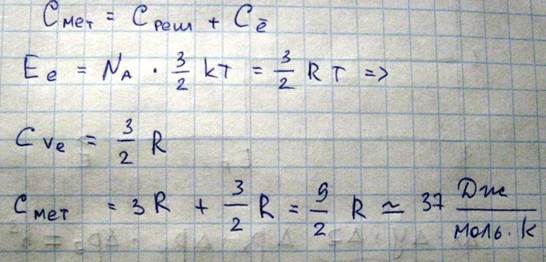 Cмет = Cреш + Cē
Eе = NA · 3/2 kT = 3/2 RT =>
Cve = 3/2 R
Cмет = 3R + 3/2 R = 9/2 R ≃ 37 Дж/моль·к